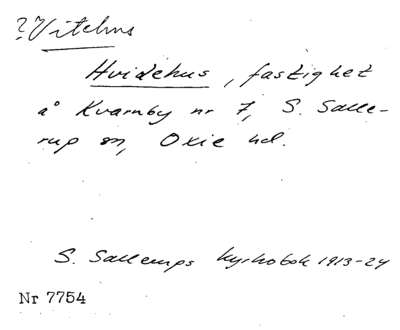 ?Vitehus
Hvidehus, fastighet
å Kvarnby nr 7, S. Salle-
rup sn, Oxie hd.
S. Sallerups kyrkobok 1913-24
Nr 7754